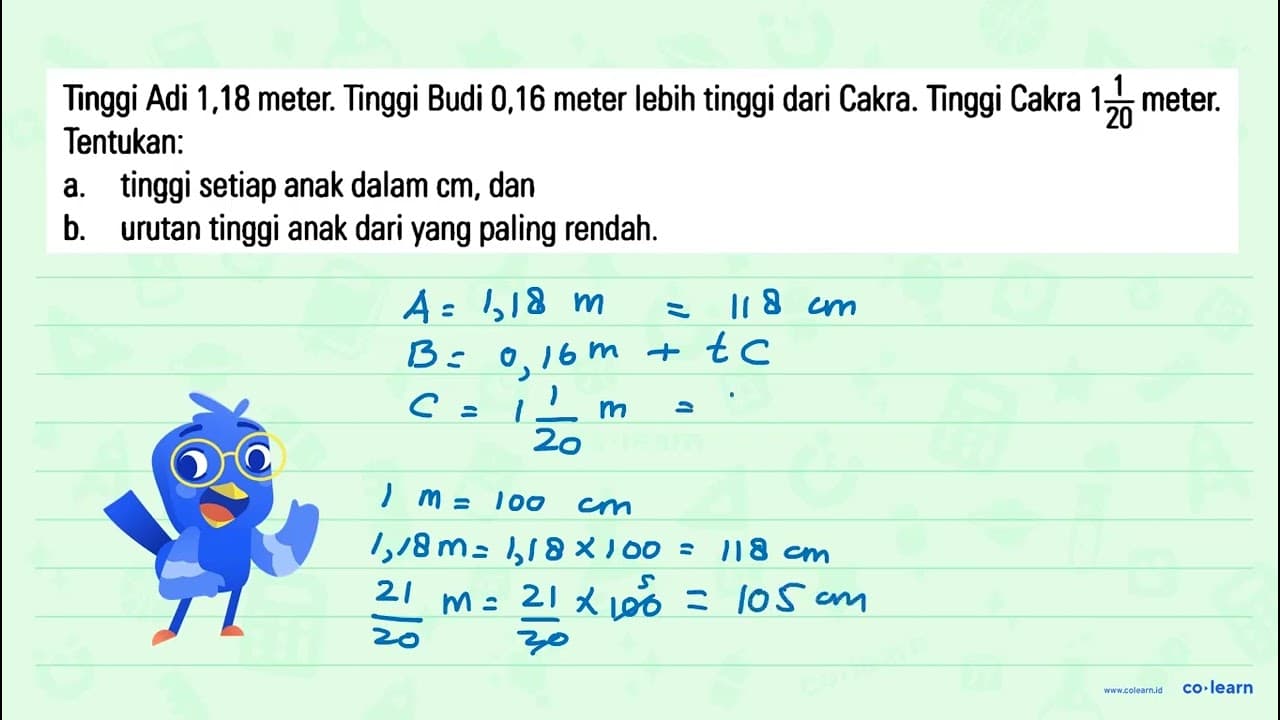 Tinggi Adi 1,18 meter. Tinggi Budi 0,16 meter lebih tinggi dari Cakra. Tinggi Cakra 1 1/20 meter.
Tentukan:
a. tinggi setiap anak dalam cm, dan
b. urutan tinggi anak dari yang paling rendah.
A = 1,18 m = 118 cm
B = 0,16 m + t C
C = 1 1/20 m =
1 m = 100 cm
1,18 m = 1,18 × 100 = 118 cm
21/20 m = 21/20 × 100 5 = 105 cm
www.colearn.id co·learn